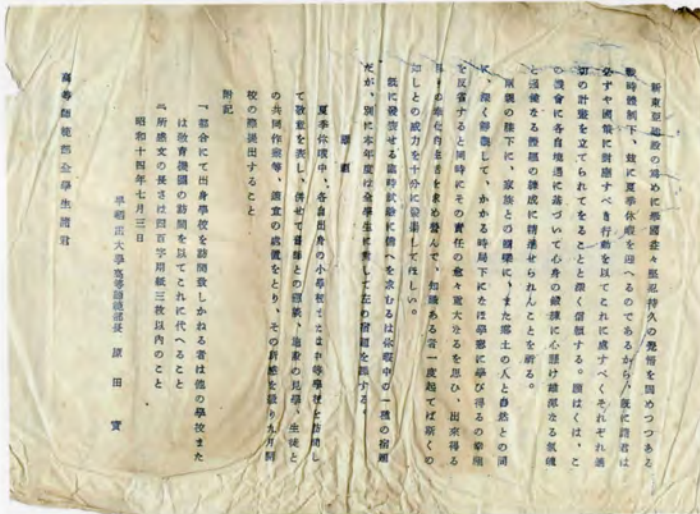 新東亞建設の爲めに擧國益々堅忍持久の覺悟を固めつつある
戰時體制下、玆に夏季休暇を迎へるのであるから、既に諸君は
必ずや國策に對應すべき行動を以てこれに處すべくそれぞれ適
切の計畫を立てられてをることと深く信頼する。願はくは、こ
の機會に各自境遇に基づいて心身の鍛錬に心懸け雄渾なる氣魄
と强健なる體軀の錬成に精進せられんことを祈る。
に、深く靜觀して、かかる時局下になほ學窓に學び得るの幸福
を反省すると同時にその責任の愈々重大なるを思ひ、出來得る
の奉仕的生活を求め營んで、知識ある者一度起てば斯くの
如しとの威力を十分に發揮してほしい。
既に發表せる臨時試驗に備へを求むるは休暇中の一種の宿題
だが、別に本年度は全學生に對して左の宿題を課する。
宿題
夏季休暇中、各自出身の小學校または中等學校を訪問し
て敬意を表し、併せて舊師との懇談、施設の見學、生徒と
の共同作業等、適宜の處置をとり、その所感を綴り九月開
校の際提出すること
附記
一、都合にて出身學校を訪問致しかねる者は他の學校また
は敎育機關の訪問を以てこれに代へること
二、所感文の長さは四百字用紙三枚以內のこと
昭和十四年七月三日
早稻田大學高等師範部長　原田實
高等師範部全學生諸君